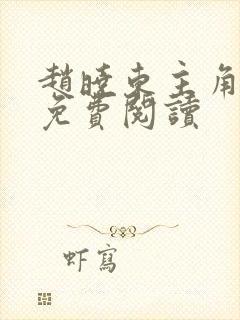 趙曉東主角
免費閱讀
虾寫